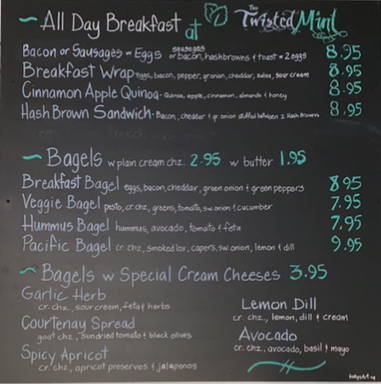 ~ All Day Breakfast at The Twisted Mint
Bacon or Sausages w Eggs sausages or bacon, hashbrowns & toast w 2 eggs 8.95
Breakfast Wrap eggs, bacon, pepper, gr onion, cheddar, salsa, sour cream 8.95
Cinnamon Apple Quinoa - Quinoa, apple, cinnamon, almonds & honey 8.95
Hash Brown Sandwich - Bacon, cheddar & gr onion stuffed between 2 Hash Browns 8.95
~ Bagels w plain cream chz. 2.95 w butter 1.95
Breakfast Bagel eggs, bacon, cheddar, green onion & green peppers 8.95
Veggie Bagel pesto, cr chz, greens, tomato, sw onion & cucumber 7.95
Hummus Bagel hummus, avocado, tomato & feta 7.95
Pacific Bagel cr. chz., smoked lox, capers, sw. onion, lemon & dill 9.95
~ Bagels w Special Cream Cheeses 3.95
Garlic Herb
cr. chz., sour cream, feta & herbs
Courtenay Spread
goat chz., sundried tomato & black olives
Spicy Apricot
cr. chz., apricot preserves & jalapenos
Lemon Dill
cr. chz., lemon, dill & cream
Avocado
cr. chz., avocado, basil & mayo